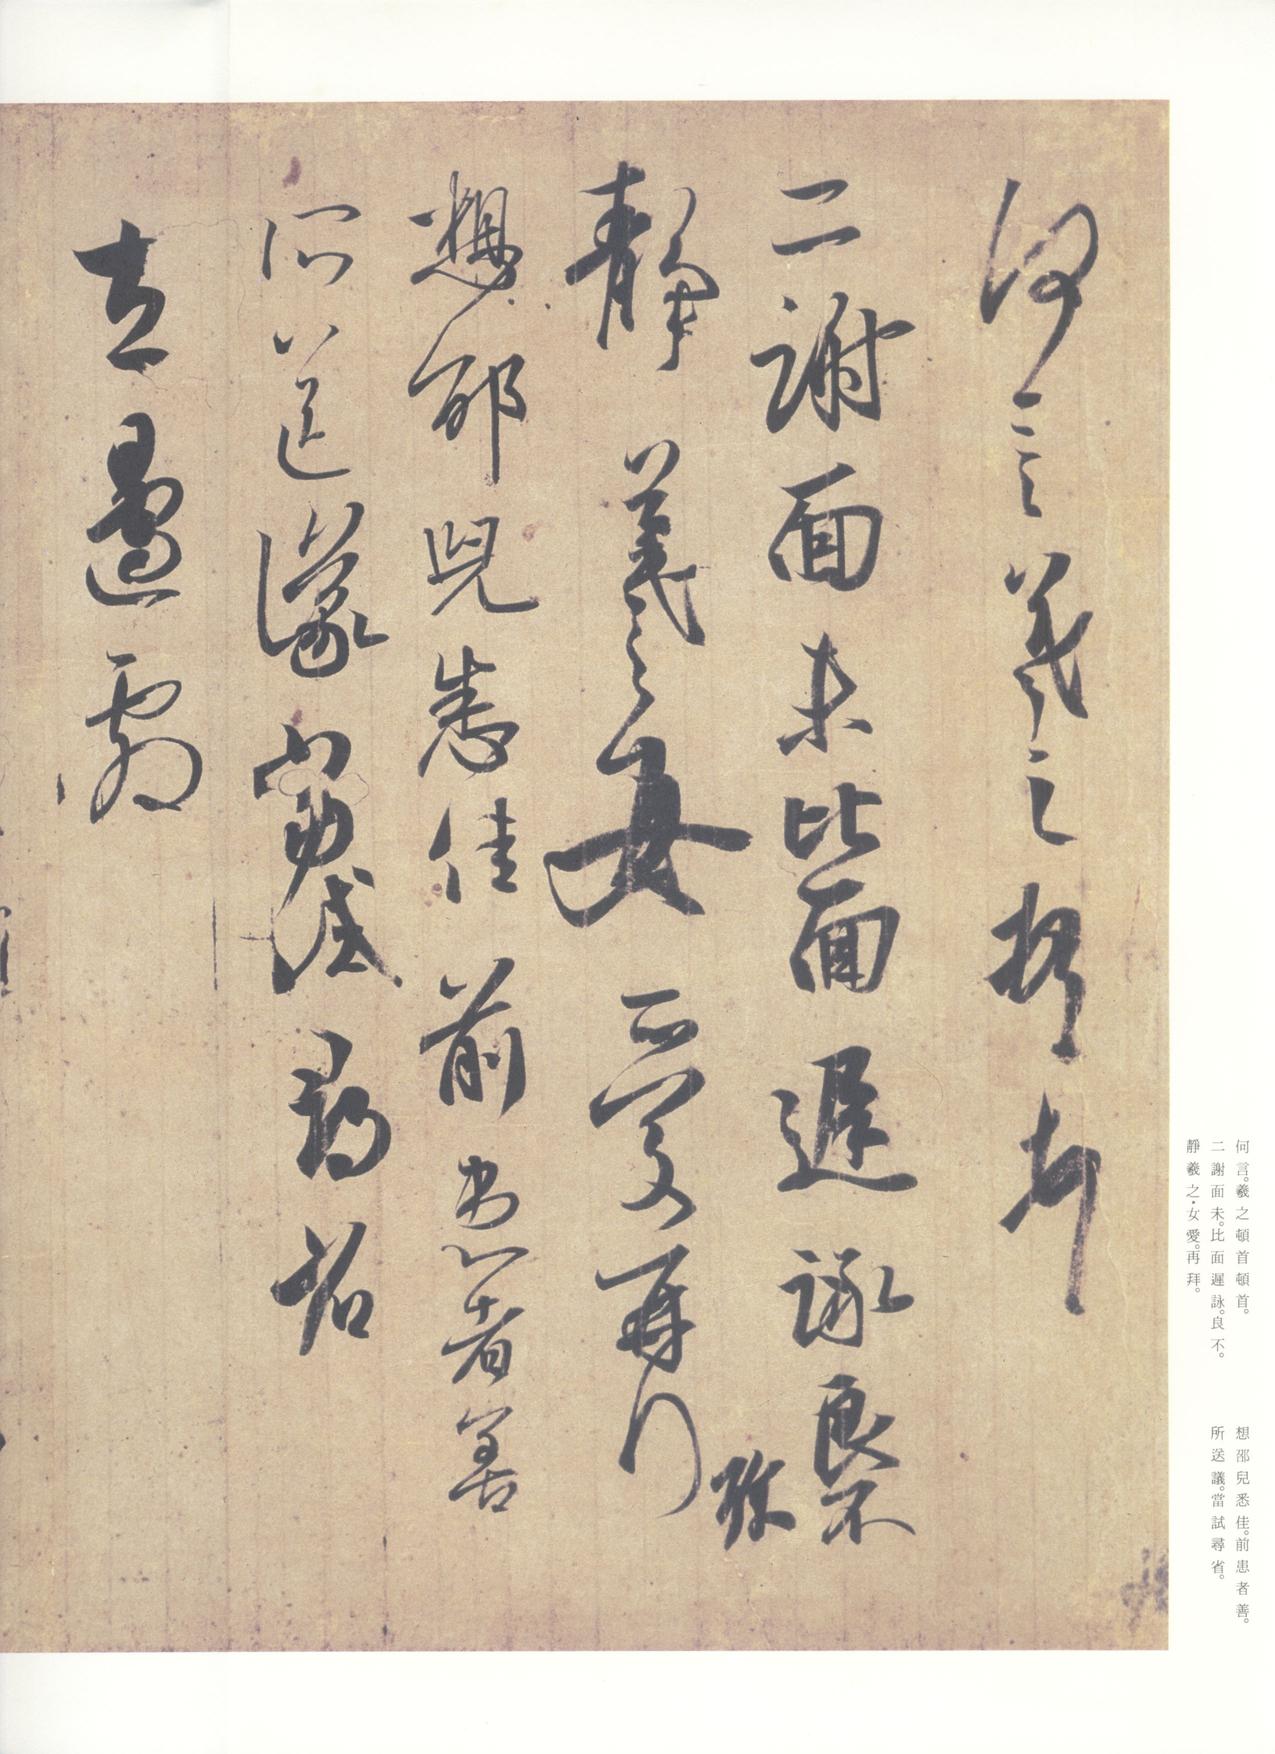 何言。羲之頓首頓首。
二謝面未。比面遲詠。良不。
靜羲之・女愛。再拜。
想邵兒悉佳。前患者善。
所送議。當試尋省。
何言羲之頓首頓首
二謝面未比面遲詠良不
靜羲之女愛再拜
珍
想邵兒悉佳前患者善
所送議當試尋省
左邊劇